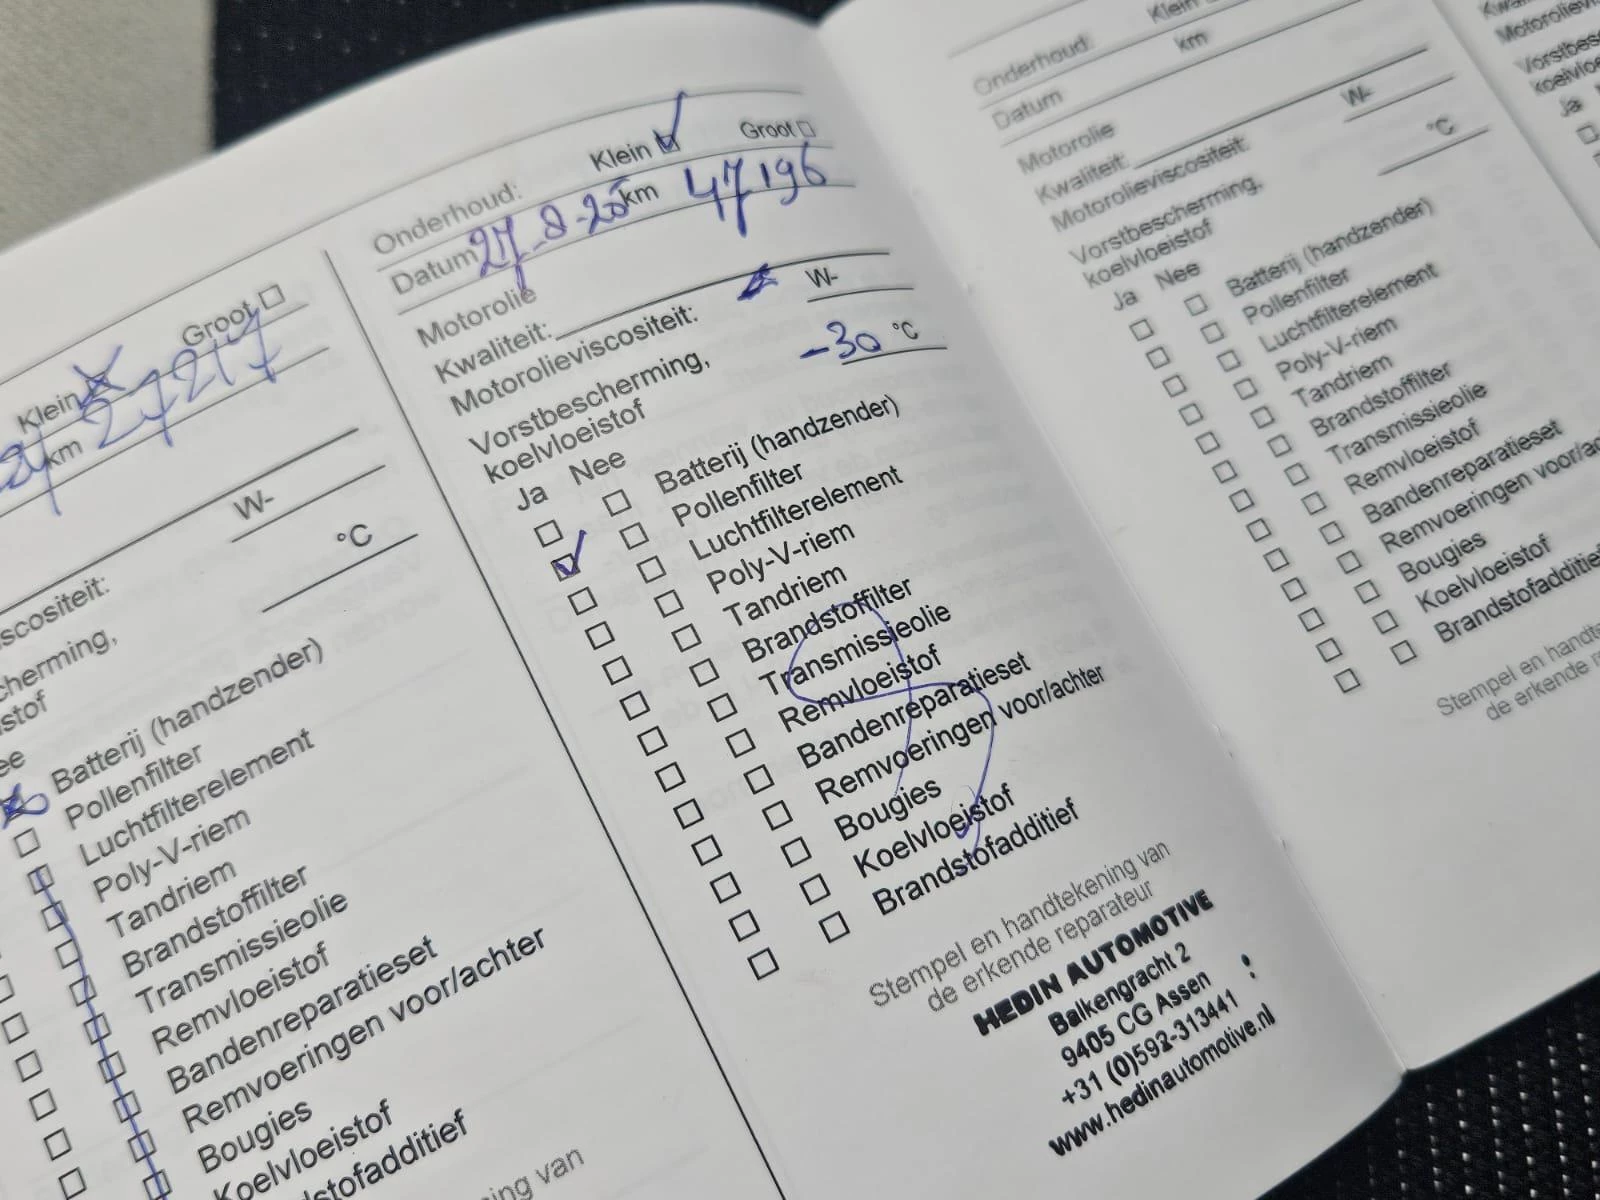 Klein Groot
km 27217
W-
scositeit:
°C
cherming,
stof
ee
Batterij (handzender)
Pollenfilter
Luchtfilterelement
Poly-V-riem
Tandriem
Brandstoffilter
Transmissieolie
Remvloeistof
Bandenreparatieset
Remvoeringen voor/achter
Bougies
Koelvloeistof
stofadditief
ing van
Onderhoud: Klein Groot
Datum 27-8-25 km 47196
Motorolie
Kwaliteit: W-
Motorolieviscositeit:
Vorstbescherming, -30 °C
koelvloeistof
Ja Nee
Batterij (handzender)
Pollenfilter
Luchtfilterelement
Poly-V-riem
Tandriem
Brandstoffilter
Transmissieolie
Remvloeistof
Bandenreparatieset
Remvoeringen voor/achter
Bougies
Koelvloeistof
Brandstofadditief
Stempel en handtekening van
de erkende reparateur
HEDIN AUTOMOTIVE
Balkengracht 2
9405 CG Assen
+31 (0)592-313441
www.hedinautomotive.nl
Onderhoud: Klein
Datum km
Motorolie
Kwaliteit: W-
Motorolieviscositeit:
Vorstbescherming, °C
koelvloeistof
Ja Nee
Batterij (handzender)
Pollenfilter
Luchtfilterelement
Poly-V-riem
Tandriem
Brandstoffilter
Transmissieolie
Remvloeistof
Bandenreparatieset
Remvoeringen voor/ac
Bougies
Koelvloeistof
Brandstofadditie
Stempel en handte
de erkende re
Motorolievis
Vorstbesc
koelvloe
Ja